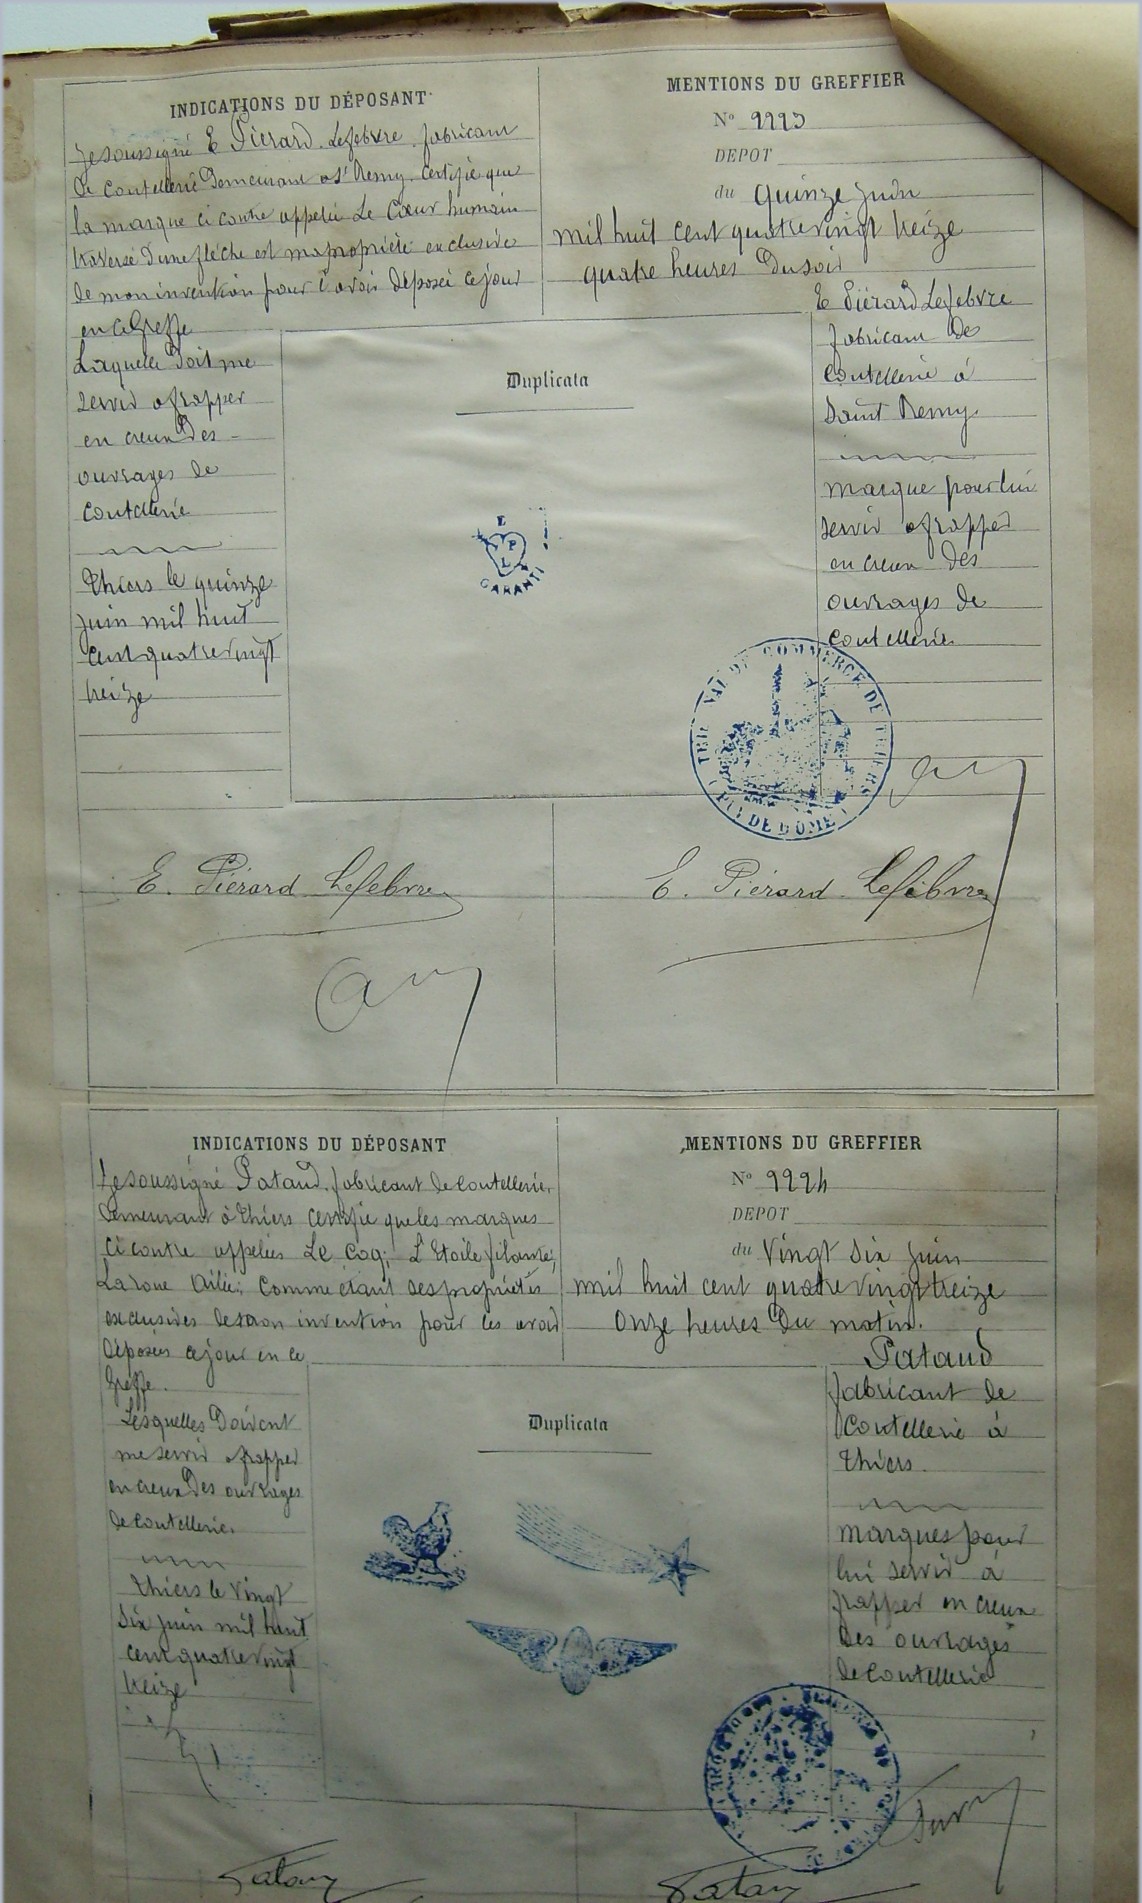 INDICATIONS DU DÉPOSANT
Je soussigné E Piérard. Lefebvre. fabricant
de coutellerie Demeurant a St Remy. certifie que
la marque ci contre appelée Le Cœur humain
traversé d'une flèche est ma propriété exclusive
de mon invention pour l'avoir déposée ce jour
en ce Greffe
Laquelle Doit me
servir a frapper
en creux Des
ouvrages de
coutellerie
Thiers le quinze
juin mil huit
cent quatre vingt
treize
MENTIONS DU GREFFIER
No 2223
DEPOT
du quinze Juin
mil huit cent quatre vingt treize
quatre heures Du soir
E Piérard Lefebvre
fabricant de
coutellerie à
Saint Remy
marque pour lui
servir a frapper
en creux des
ouvrages de
coutellerie
Duplicata
E
P
L
GARANTI
TRIBUNAL DE COMMERCE DE THIERS
PUY DE DOME
E. Piérard Lefebvre
E. Piérard Lefebvre
INDICATIONS DU DÉPOSANT
Je soussigné Pataud. fabricant de coutellerie.
Demeurant à Thiers certifie que les marques
ci contre appelées Le Coq; L'Etoile filante;
La roue Ailée; comme étant ses propriétés
exclusives de son invention pour les avoir
Déposées ce jour en ce
Greffe.
Lesquelles Doivent
me servir a frapper
en creux Des ouvrages
de coutellerie.
Thiers le Vingt
six juin mil huit
cent quatre vingt
treize
MENTIONS DU GREFFIER
No 2224
DEPOT
du Vingt six juin
mil huit cent quatre vingt treize
onze heures Du matin.
Pataud
fabricant de
coutellerie à
Thiers.
marques pour
lui servir à
frapper en creux
des ouvrages
de coutellerie
Duplicata
Pataud
Pataud